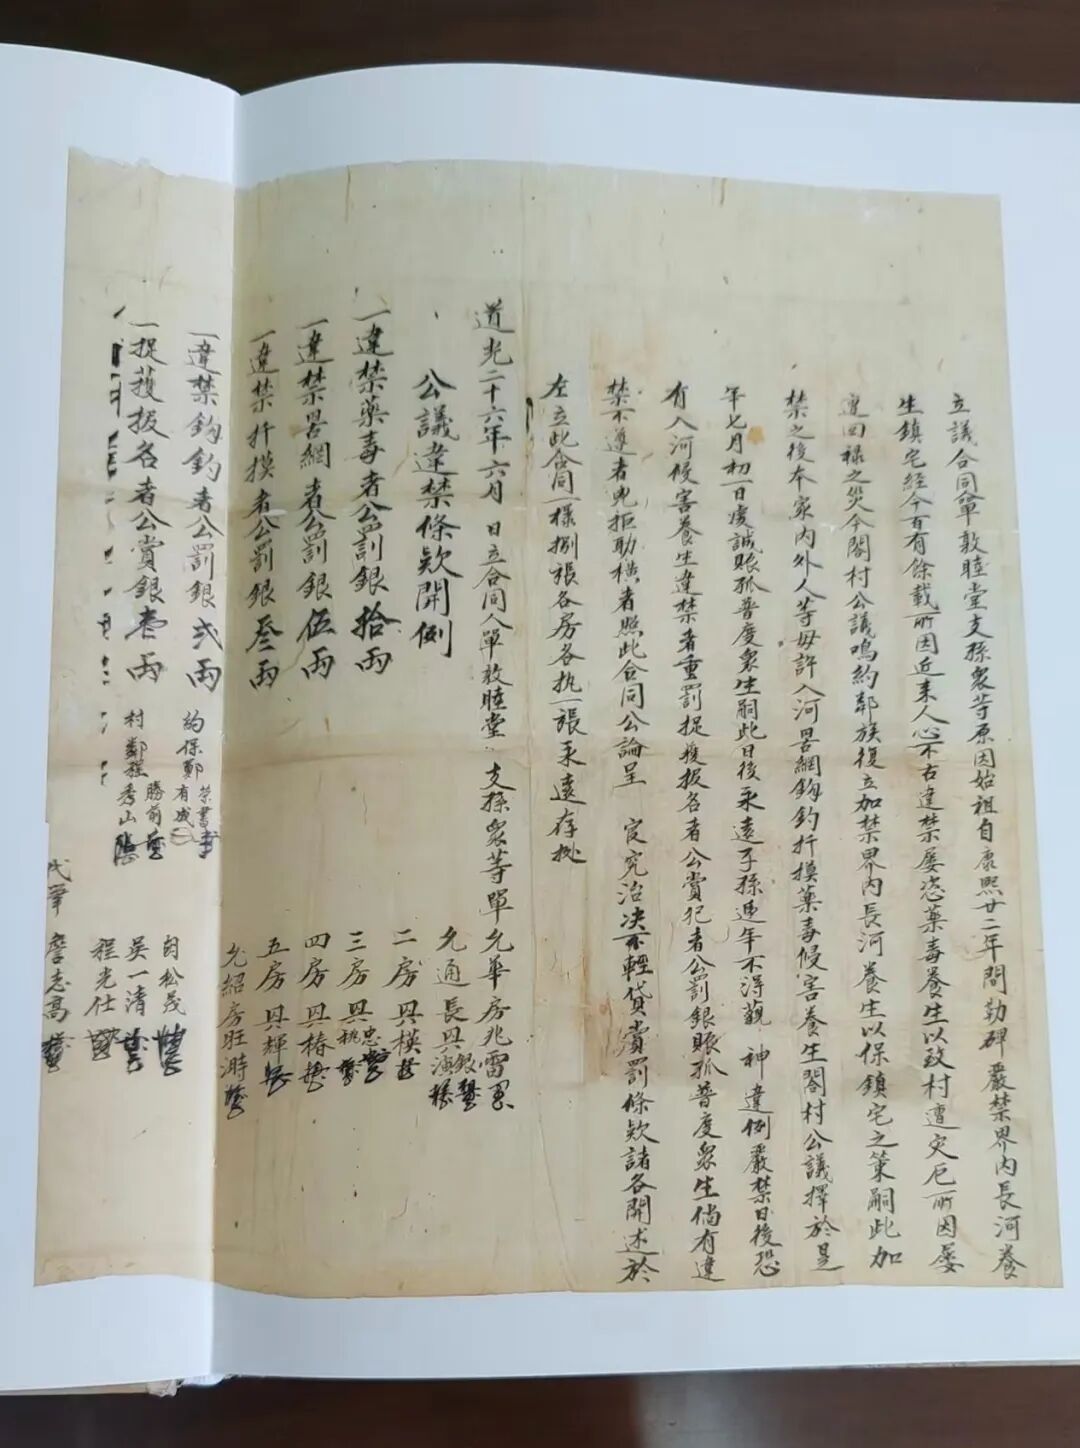 立議合同單敦睦堂支孫衆等原因始祖自康熙廿二年間勒碑嚴禁界內長河養
生鎮宅經今百有餘載所因近來人心不古違禁屡恣藥毒養生以致村遭灾厄所因屡
遭回禄之災今閤村公議鳴約鄰族復立加禁界內長河養生以保鎮宅之策嗣此加
禁之後本家內外人等毋許入河罟網鈎釣扦摸藥毒侵害養生閤村公議擇於是
年七月初一日虔誠賑孤普度衆生嗣此日後永遠子孫遞年不淂觀　神違例嚴禁日後恐
有入河侵害養生違禁者重罰捉獲报名者公賞犯者公罰銀賬孤普度衆生倘有違
禁不遵者兇拒耵橫者照此合同公論呈　官究治决不輕貸賞罰條欵諸各開述於
左立此合同一樣捌張各房各执一張永遠存抄
道光二十六年六月　日立合同人單敦睦堂　支孫衆等單
允華房兆雷
公議違禁條欵開例
允通長房興銀
演
一違禁藥毒者公罰銀拾両
二房興模
一違禁罟網者公罰銀伍両
三房興忠
桃
四房興椿
一違禁扦摸者公罰銀叁両
五房興輝
允紹房旺溡
一違禁鈎釣者公罰銀弍両
約保鄭有成
榮書
一捉獲报名者公賞銀壱両
村鄰程秀山
勝前
吳一清
程光仕
代筆
詹志高